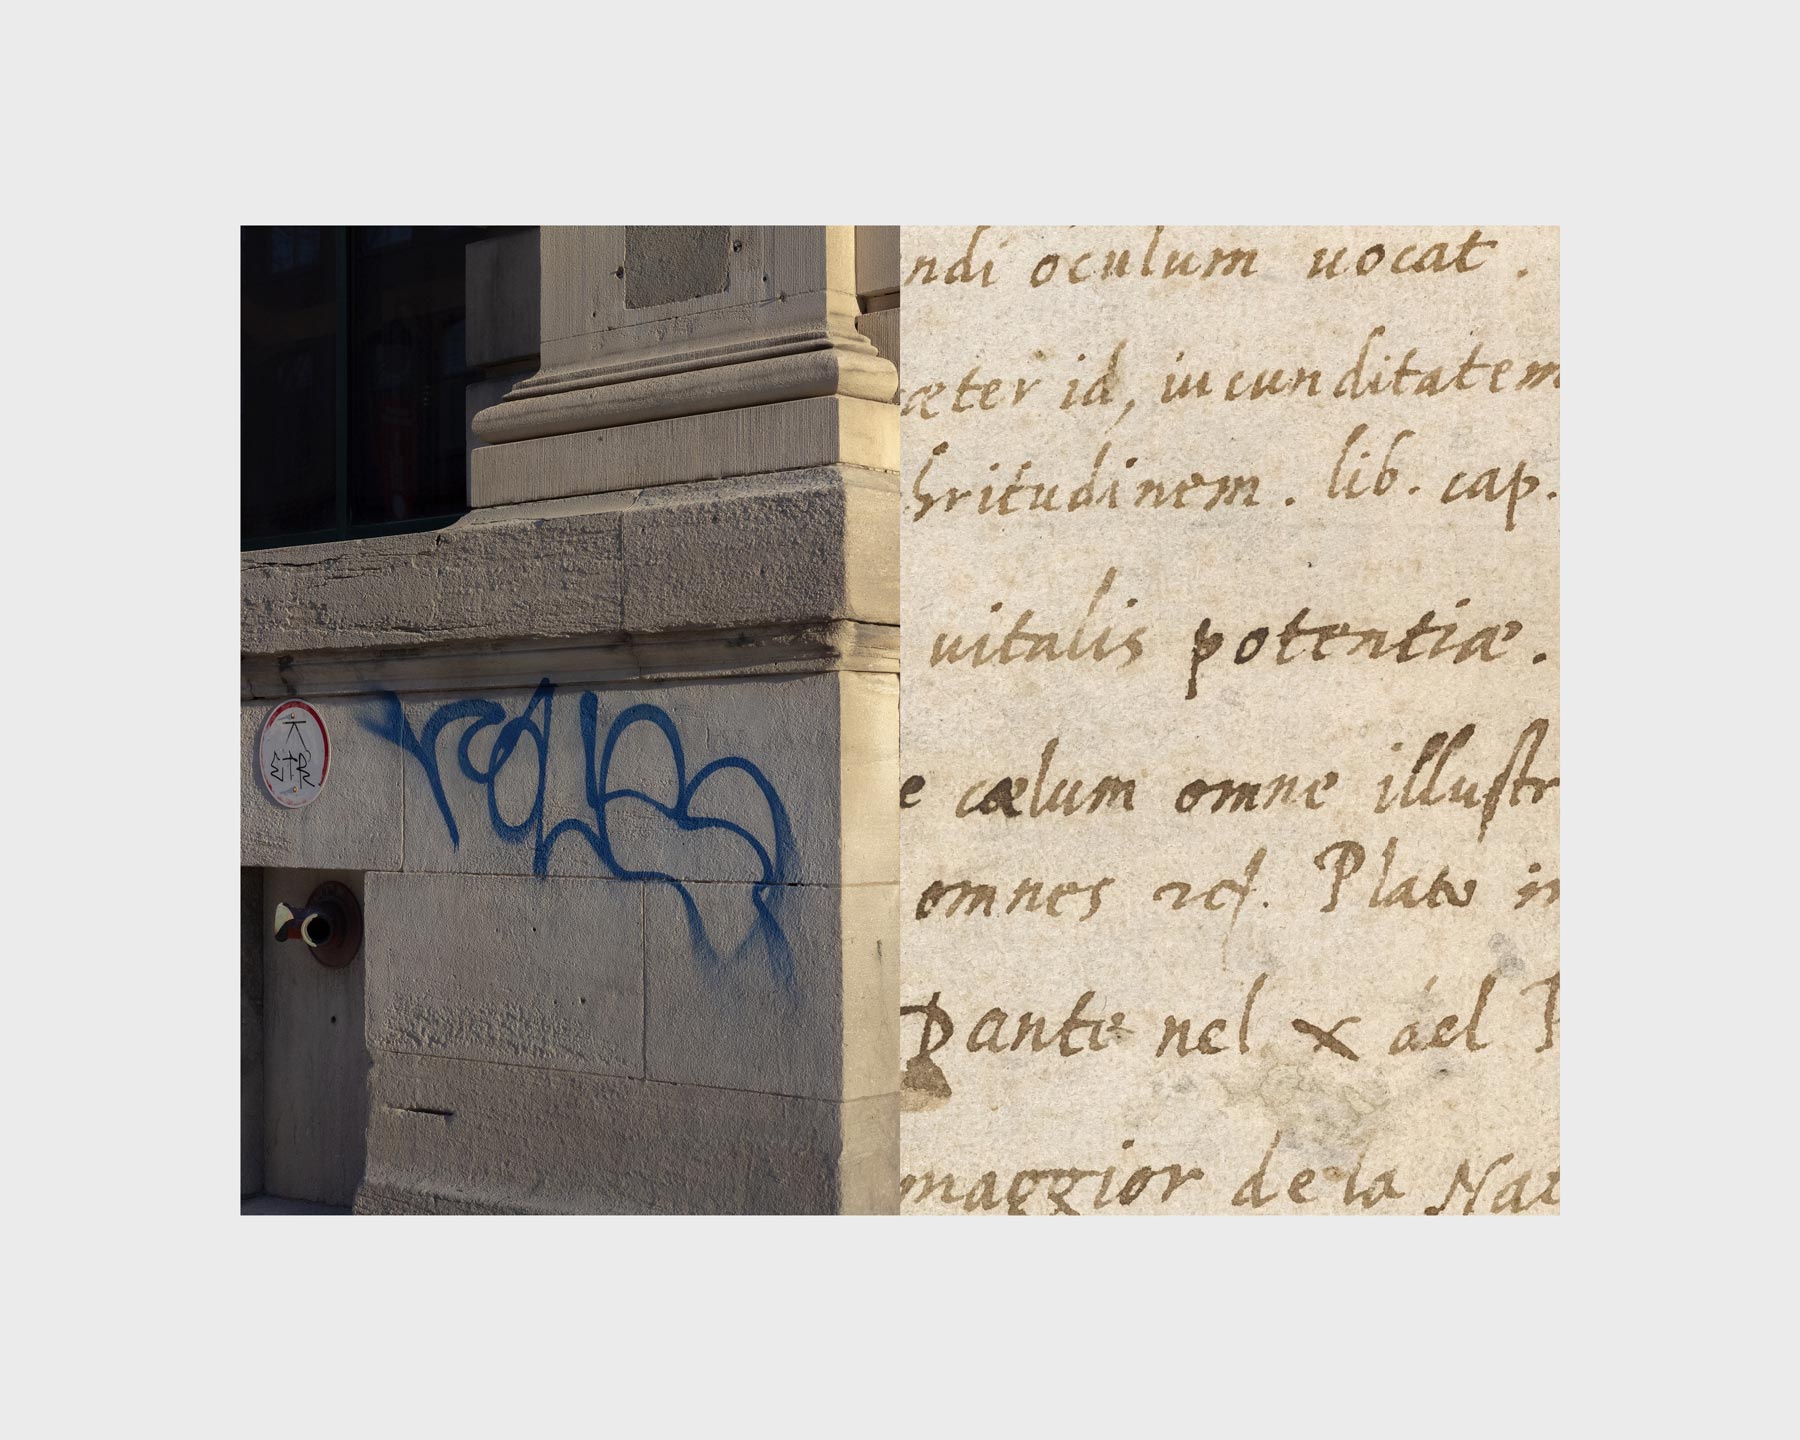 ndi oculum uocat .
æter id, iucunditatem
hritudinem . lib . cap.
uitalis potentiæ .
e cælum omne illustr
omnes Plato in
Dante nel x del P
maggior de la Nat